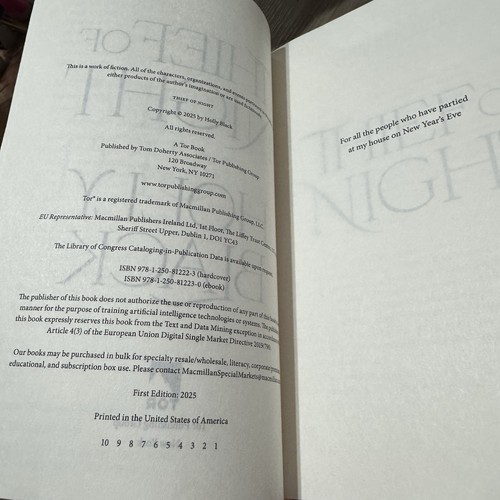 This is a work of fiction. All of the characters, organizations, and events
either products of the author's imagination or are used fictitiously.
THIEF OF NIGHT
Copyright © 2025 by Holly Black
All rights reserved.
A Tor Book
Published by Tom Doherty Associates / Tor Publishing Group
120 Broadway
New York, NY 10271
www.torpublishinggroup.com
Tor® is a registered trademark of Macmillan Publishing Group, LLC.
EU Representative: Macmillan Publishers Ireland Ltd, 1st Floor, The Liffey Trust Centre,
Sheriff Street Upper, Dublin 1, DO1 YC43
The Library of Congress Cataloging-in-Publication Data is available upon request.
ISBN 978-1-250-81222-3 (hardcover)
ISBN 978-1-250-81223-0 (ebook)
The publisher of this book does not authorize the use or reproduction of any part of this book
manner for the purpose of training artificial intelligence technologies or systems. The publisher
this book expressly reserves this book from the Text and Data Mining exception in accordance
Article 4(3) of the European Union Digital Single Market Directive 2019/790.
Our books may be purchased in bulk for specialty retail/wholesale, literacy, corporate/premium,
educational, and subscription box use. Please contact MacmillanSpecialMarkets@macmillan
First Edition: 2025
Printed in the United States of America
10 9 8 7 6 5 4 3 2 1
For all the people who have partied
at my house on New Year's Eve